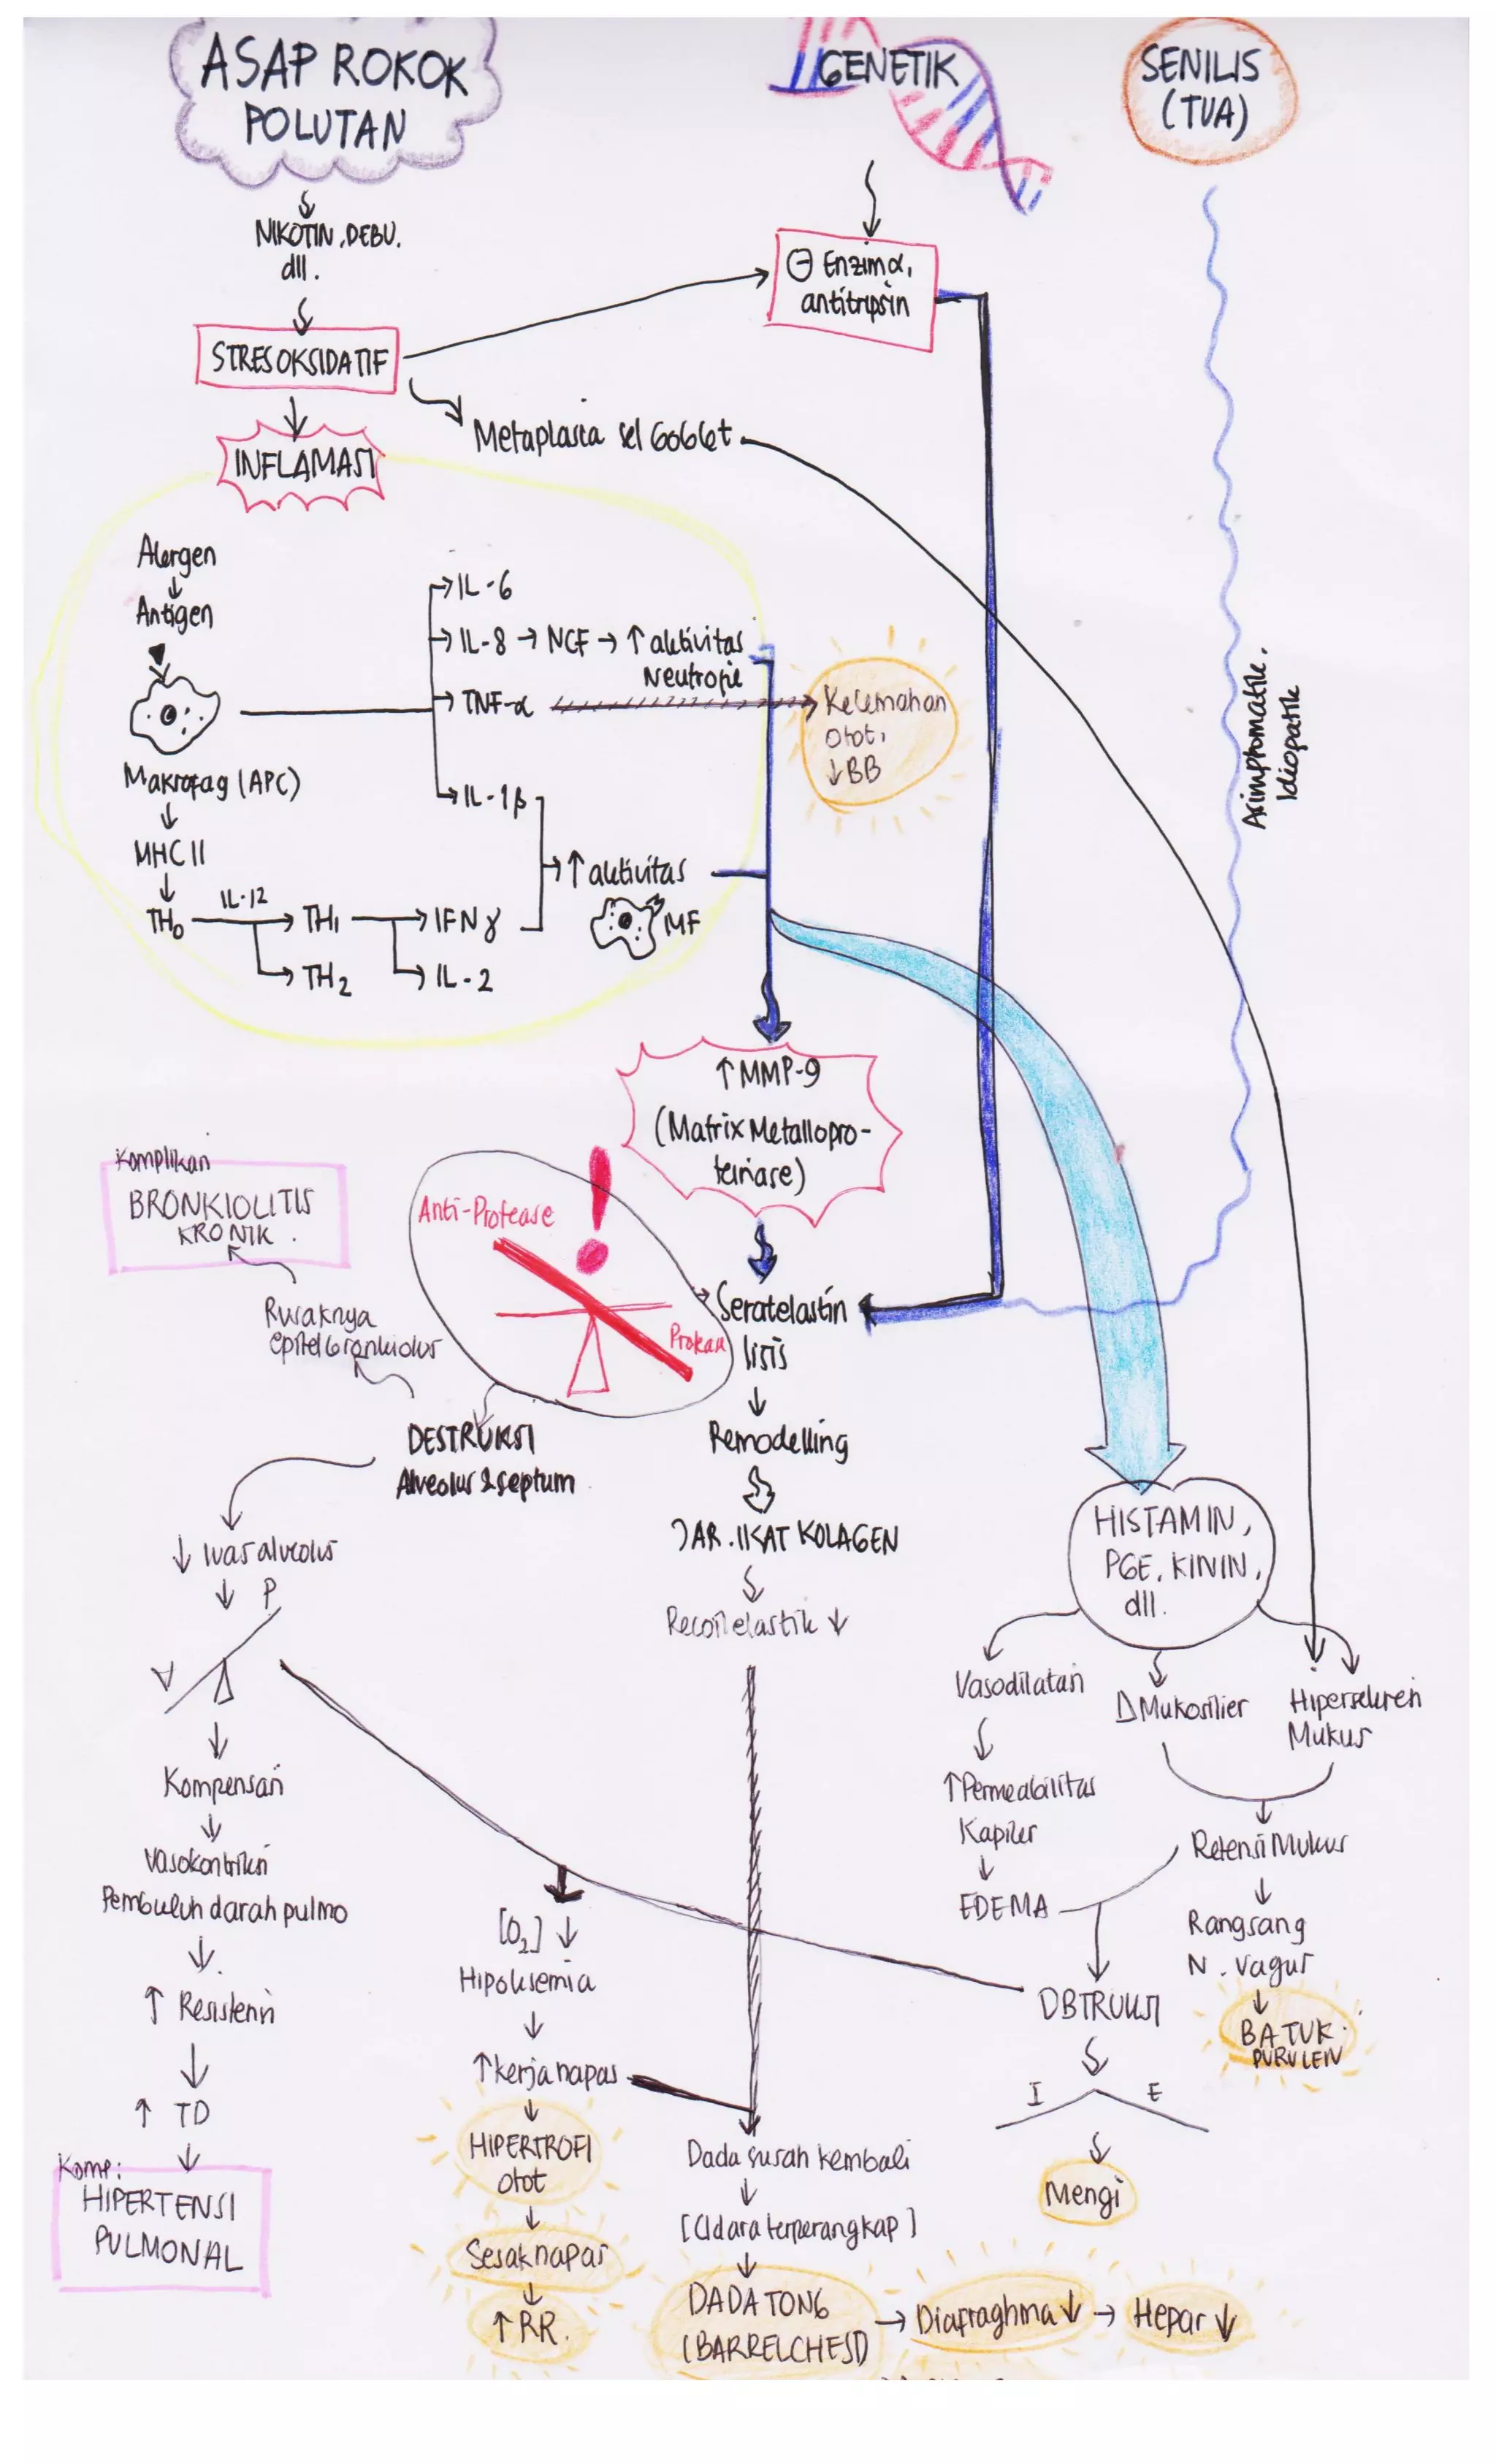 ASAP ROKOK
POLUTAN
GENETIK
SENILIS
(TUA)
NIKOTIN, DEBU.
dll.
⊖ Enzim α1
antitripsin
STRES OKSIDATIF
Metaplasia sel Goblet
INFLAMASI
Alergen
↓
Antigen
Makrofag (APC)
↓
MHC II
↓
TH0
IL-12
→ TH1
→ TH2
→ IFN γ
→ IL-2
→ IL-6
→ IL-8 → NCF → ↑ aktivitas
Neutrofil
→ TNF-α
→ IL-1β
→ ↑ aktivitas
MF
Kelemahan
Otot,
↓ BB
Asimptomatik,
Idiopatik
↑ MMP-9
(Matrix Metallopro-
teinase)
Komplikasi
BRONKIOLITIS
KRONIK.
Rusaknya
epitel bronkiolus
Anti-Protease
!
Serat elastin
lisis
↓
Remodelling
DESTRUKSI
Alveolus & septum
JAR. IKAT KOLAGEN
Recoil elastik ↓
HISTAMIN,
PGE, KININ,
dll.
↓ luas alveolus
↓
P
V
↓
Kompensasi
↓
Vasokontriksi
Pembuluh darah pulmo
↓
↑ Resistensi
↓
↑ TD
↓
Komp:
HIPERTENSI
PULMONAL
[O2] ↓
Hipoksemia
↓
↑ kerja napas
↓
HIPERTROFI
otot
↓
Sesak napas
↓
↑ RR.
Dada susah kembali
↓
[Udara terperangkap]
↓
DADA TONG
(BARRELCHEST)
→ Diafraghma ↓ → Hepar ↓
Vasodilatasi
↓
↑ Permeabilitas
Kapiler
↓
EDEMA
Δ Mukosilier
Hipersekresi
Mukus
Retensi Mukus
↓
Rangsang
N. vagus
↓
BATUK
PURULEN
OBTRUKSI
I E
Mengi